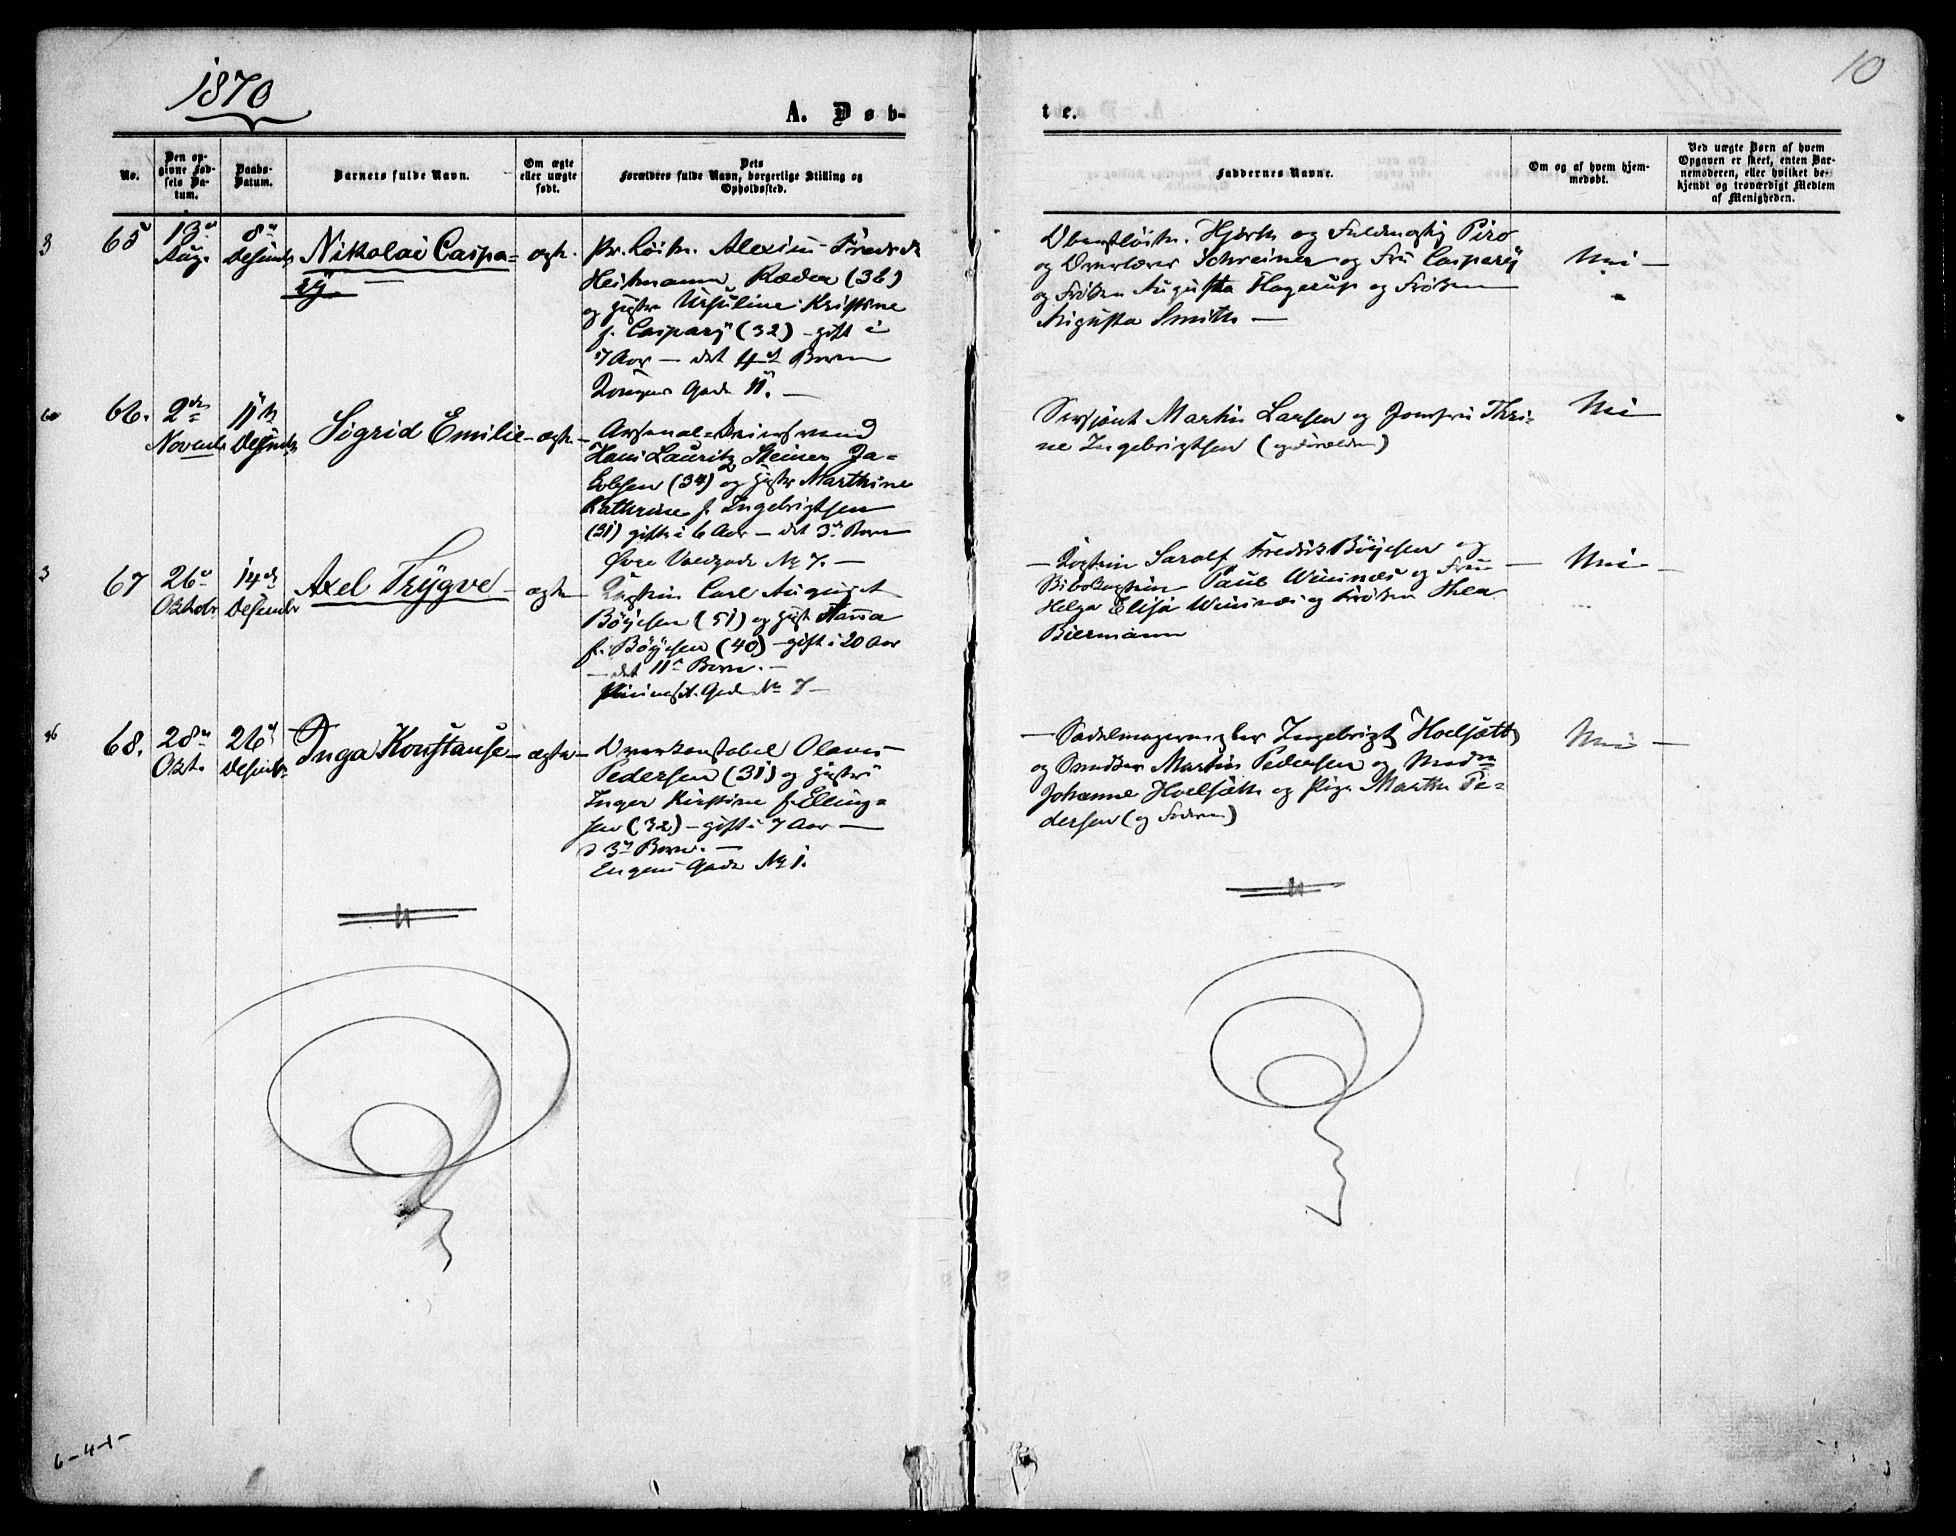 1870
10
A. Døb-
te.
No.
Den op-
givne Fød-
sels Da-
tum.
Daabs-
Datum.
Barnets fulde Navn.
Om ægte
eller uægte
født.
Dets
Forældres fulde Navn, borgerlige Stilling og
Opholdssted.
Faddernes Navne.
Om og af hvem hjem-
medøbt.
Ved uægte Børn af hvem
Opgaven er skeet, enten Bar-
nemoderen, eller hvilket be-
kjendt og troværdigt Medlem
af Menigheden.
3
65
13
Aug.
8
Desembr
Nikolai Caspa=
rÿ
- ægte.
Pr. Løitn. Alexius Fredrik
Heitmann Ræder (36)
og Hustru Ursuline Kristine
f. Casparÿ (32) - gift i
7 Aar - det 4de Barn
Gade 11. -
Oberstløitn. Hjorth og Fuldmægtig Piro
og Overlærer Schreiner og Fru Casparÿ
og Frøken Augusta Hagerup og Frøken
Augusta Smith -
Nei -
66.
2den
Novembr
11te
Desembr
Sigrid Emilie
- ægte -
Arsenal-
Hans Lauritz Steiner Ja-
kobsen (34) og Hustr Marthine
Kathrine f. Ingebrigtsen
(31) gifte i 6 Aar - det 3 Barn
Øvre Voldgade No 7. -
Sersjant Martin Larsen og Jomfru Thri-
ne Ingebrigtsen (og Forældrene)
Nei -
3
67
26
Oktobr
14de
Desembr
Axel Trÿgve
- ægte -
Kaptein Carl August
Böÿesen (51) og Hustr Hanna
f. Böÿesen (40) - gift i 20 Aar
- det 11 Barn. -
Gade No 7 -
- Kaptein Sarolf Fredrik Böÿesen og
Paul Winsnes og Fru
Helga Elisa Winsnes og Frøken Thea
Biermann
Nei -
68.
28
Okt.
26
Desembr
Inga Konstanse
- ægte -
Overkonstabel Olaves
Pedersen (31) og Hustru
Inger Kirstine f. Elling-
sen (32) - gift i 7 Aar -
3 Barn. -
Engens Gade No 1.
- Sadelmagersvend Ingebrigt Hoelsæth
og Snedker Martin Pedersen og Madm
Johanne Hoelsæth og Pige Marthe Pe=
dersen (og Faderen)
Nei -
6-4-1-